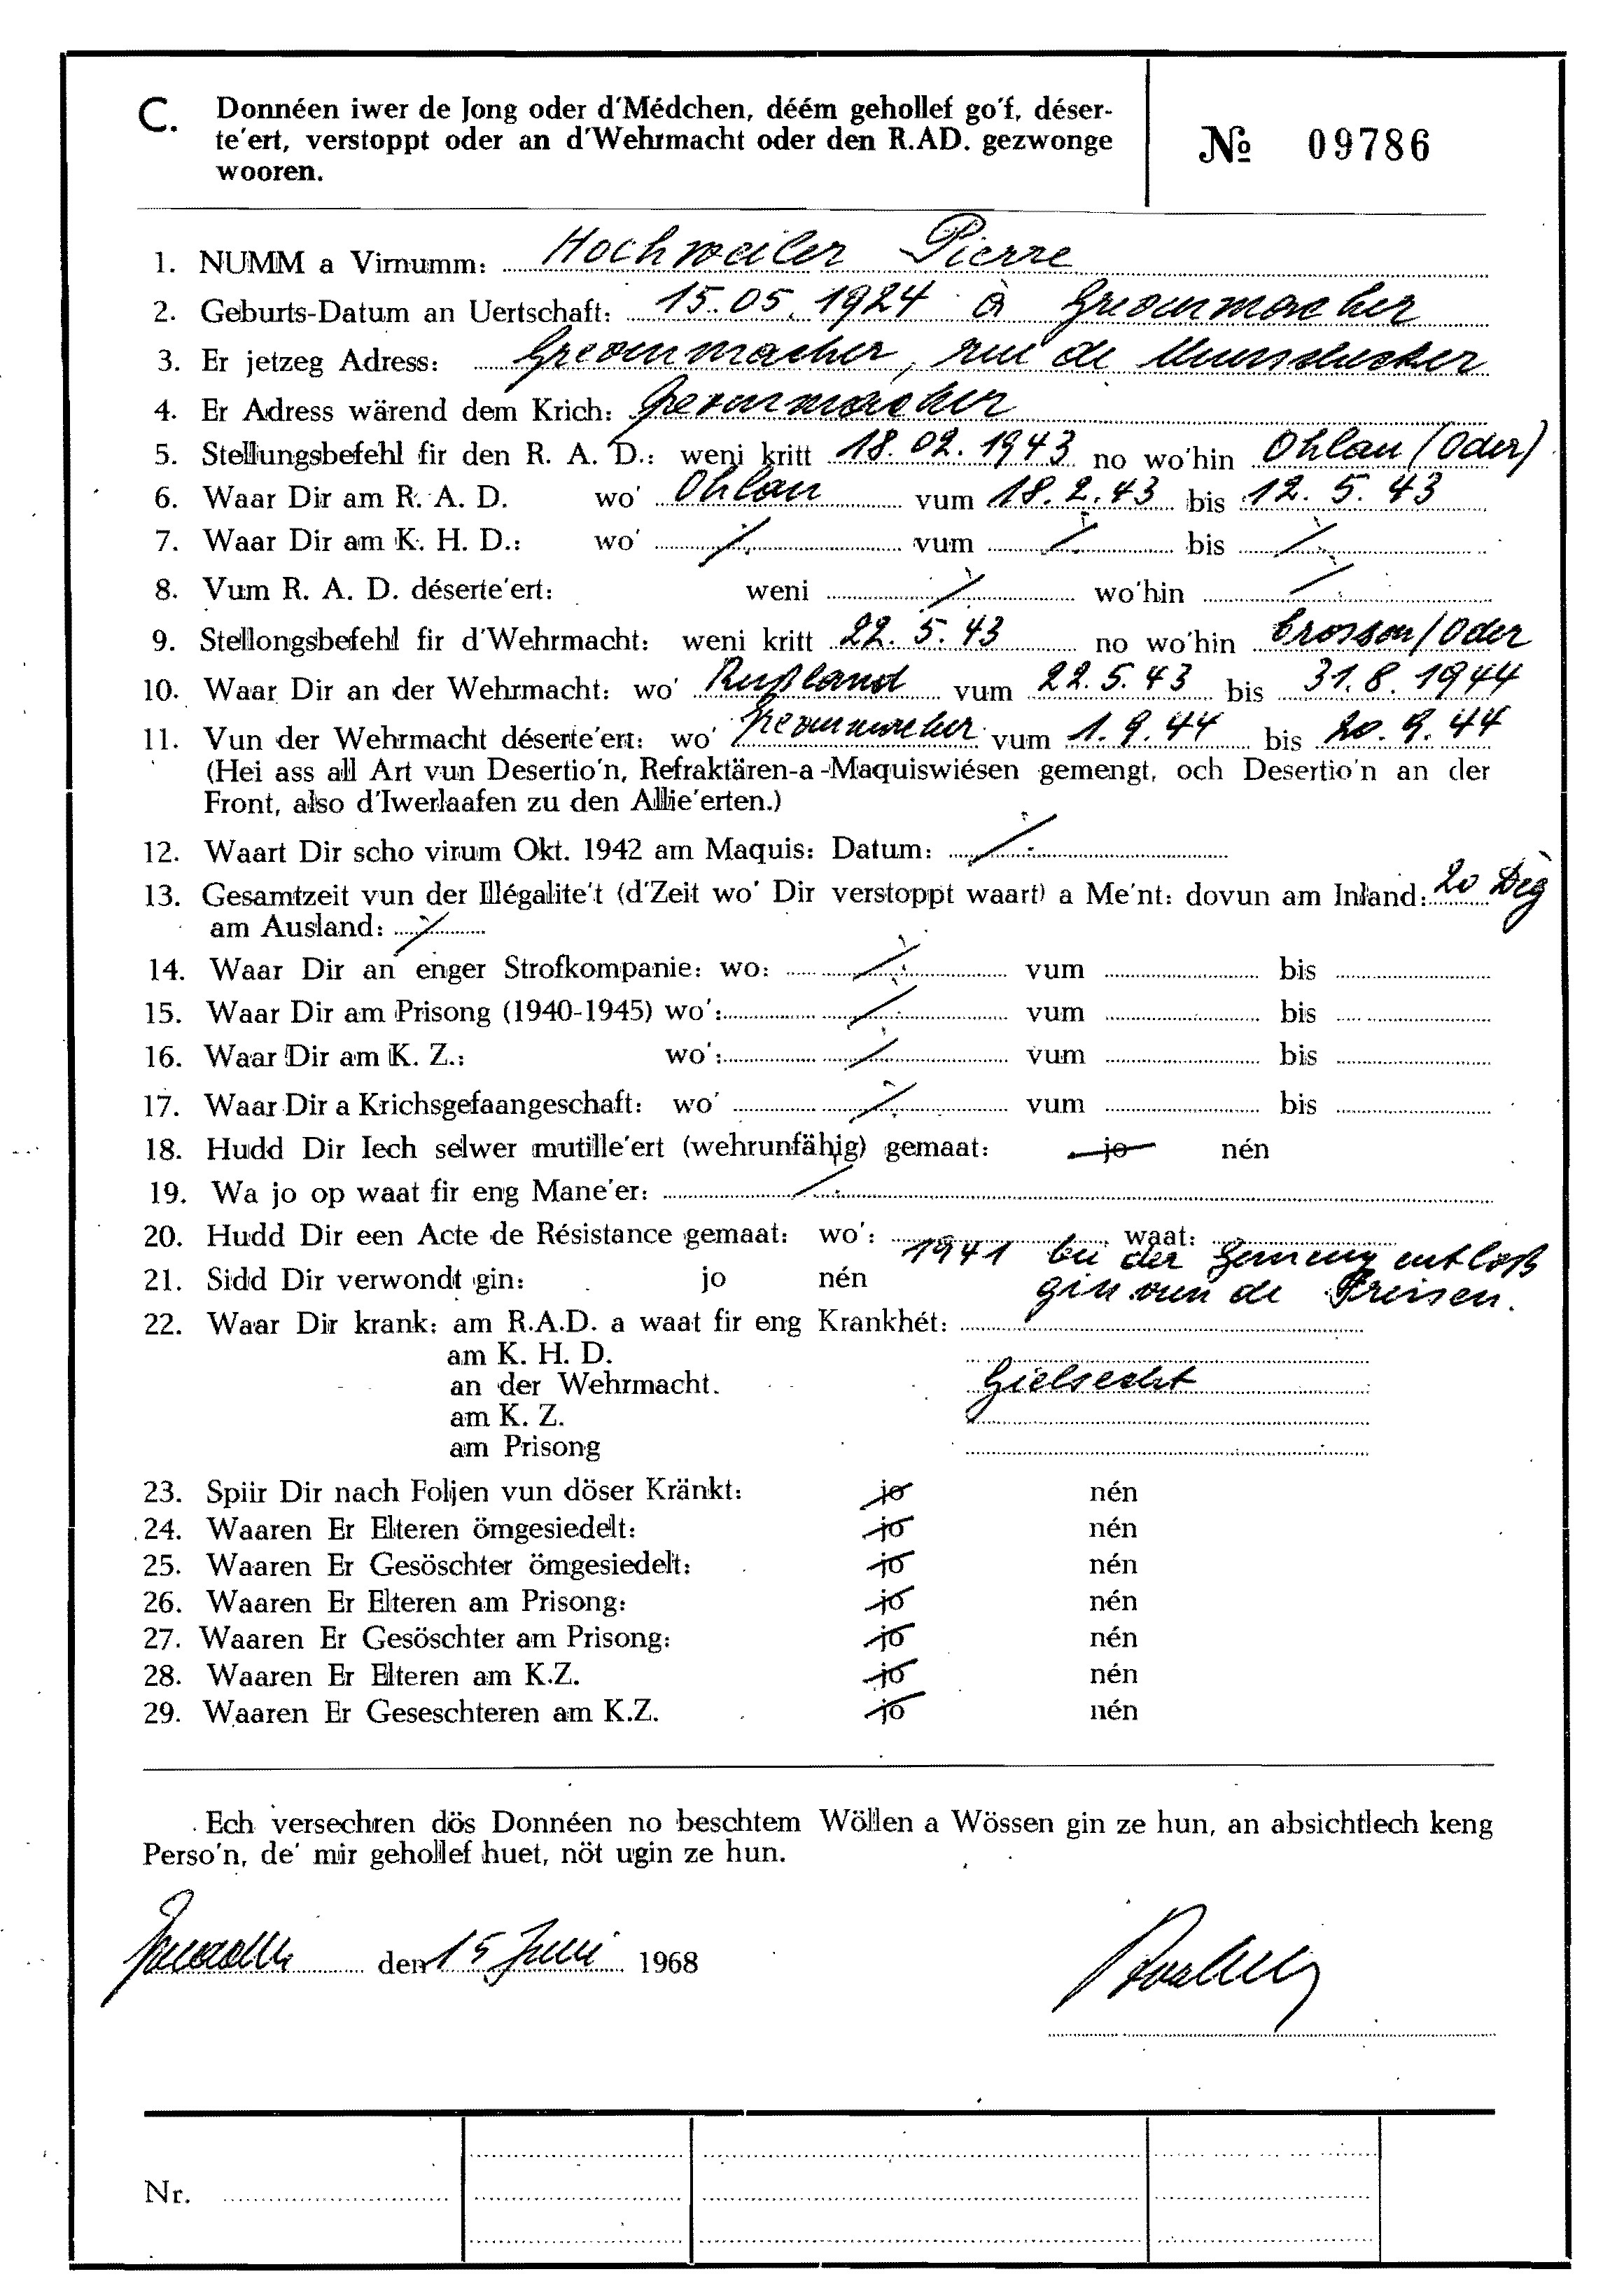 C. Donnéen iwer de Jong oder d'Médchen, déém gehollef go'f, déser-
te'ert, verstoppt oder an d'Wehrmacht oder den R.AD. gezwonge
wooren.
№ 09786
1. NUMM a Virnumm: Hochweiler Pierre
2. Geburts-Datum an Uertschaft: 15.05.1924 à Grevenmacher
3. Er jetzeg Adress: Grevenmacher, rue de Munschecker
4. Er Adress wärend dem Krich: Grevenmacher
5. Stellungsbefehl fir den R. A. D.: weni kritt 18.02.1943 no wo'hin Ohlau (Oder)
6. Waar Dir am R. A. D. wo' Ohlau vum 18.2.43 bis 12.5.43
7. Waar Dir am K. H. D.: wo' ./. vum ./. bis ./.
8. Vum R. A. D. déserte'ert: weni ./. wo'hin ./.
9. Stellongsbefehl fir d'Wehrmacht: weni kritt 22.5.43 no wo'hin Crossen/Oder
10. Waar Dir an der Wehrmacht: wo' Rußland vum 22.5.43 bis 31.8.1944
11. Vun der Wehrmacht déserte'ert: wo' Grevenmacher vum 1.9.44 bis 20.9.44
(Hei ass all Art vun Desertio'n, Refraktären-a-Maquiswiésen gemengt, och Desertio'n an der
Front, also d'Iwerlaafen zu den Allie'erten.)
12. Waart Dir scho virum Okt. 1942 am Maquis: Datum: ./.
13. Gesamtzeit vun der Illégalite't (d'Zeit wo' Dir verstoppt waart) a Me'nt: dovun am Inland: 20 Deg
am Ausland: ./.
14. Waar Dir an enger Strofkompanie: wo: ./. vum bis
15. Waar Dir am Prisong (1940-1945) wo': ./. vum bis
16. Waar Dir am K. Z.: wo': ./. vum bis
17. Waar Dir a Krichsgefaangeschaft: wo' ./. vum bis
18. Hudd Dir Iech selwer mutille'ert (wehrunfähig) gemaat: jo nén
19. Wa jo op waat fir eng Mane'er: ./.
20. Hudd Dir een Acte de Résistance gemaat: wo': waat:
1941 bei der Gemeng entloß
21. Sidd Dir verwondt gin: jo nén
gin vun de Preisen.
22. Waar Dir krank: am R.A.D. a waat fir eng Krankhét:
am K. H. D.
an der Wehrmacht. Gielsecht
am K. Z.
am Prisong
23. Spiir Dir nach Foljen vun döser Kränkt: jo nén
24. Waaren Er Elteren ömgesiedelt: jo nén
25. Waaren Er Gesöschter ömgesiedelt: jo nén
26. Waaren Er Elteren am Prisong: jo nén
27. Waaren Er Gesöschter am Prisong: jo nén
28. Waaren Er Elteren am K.Z. jo nén
29. Waaren Er Geseschteren am K.Z. jo nén
Ech versechren dös Donnéen no beschtem Wöllen a Wössen gin ze hun, an absichtlech keng
Perso'n, de' mir gehollef huet, nöt ugin ze hun.
den 15 Juni 1968
Nr.